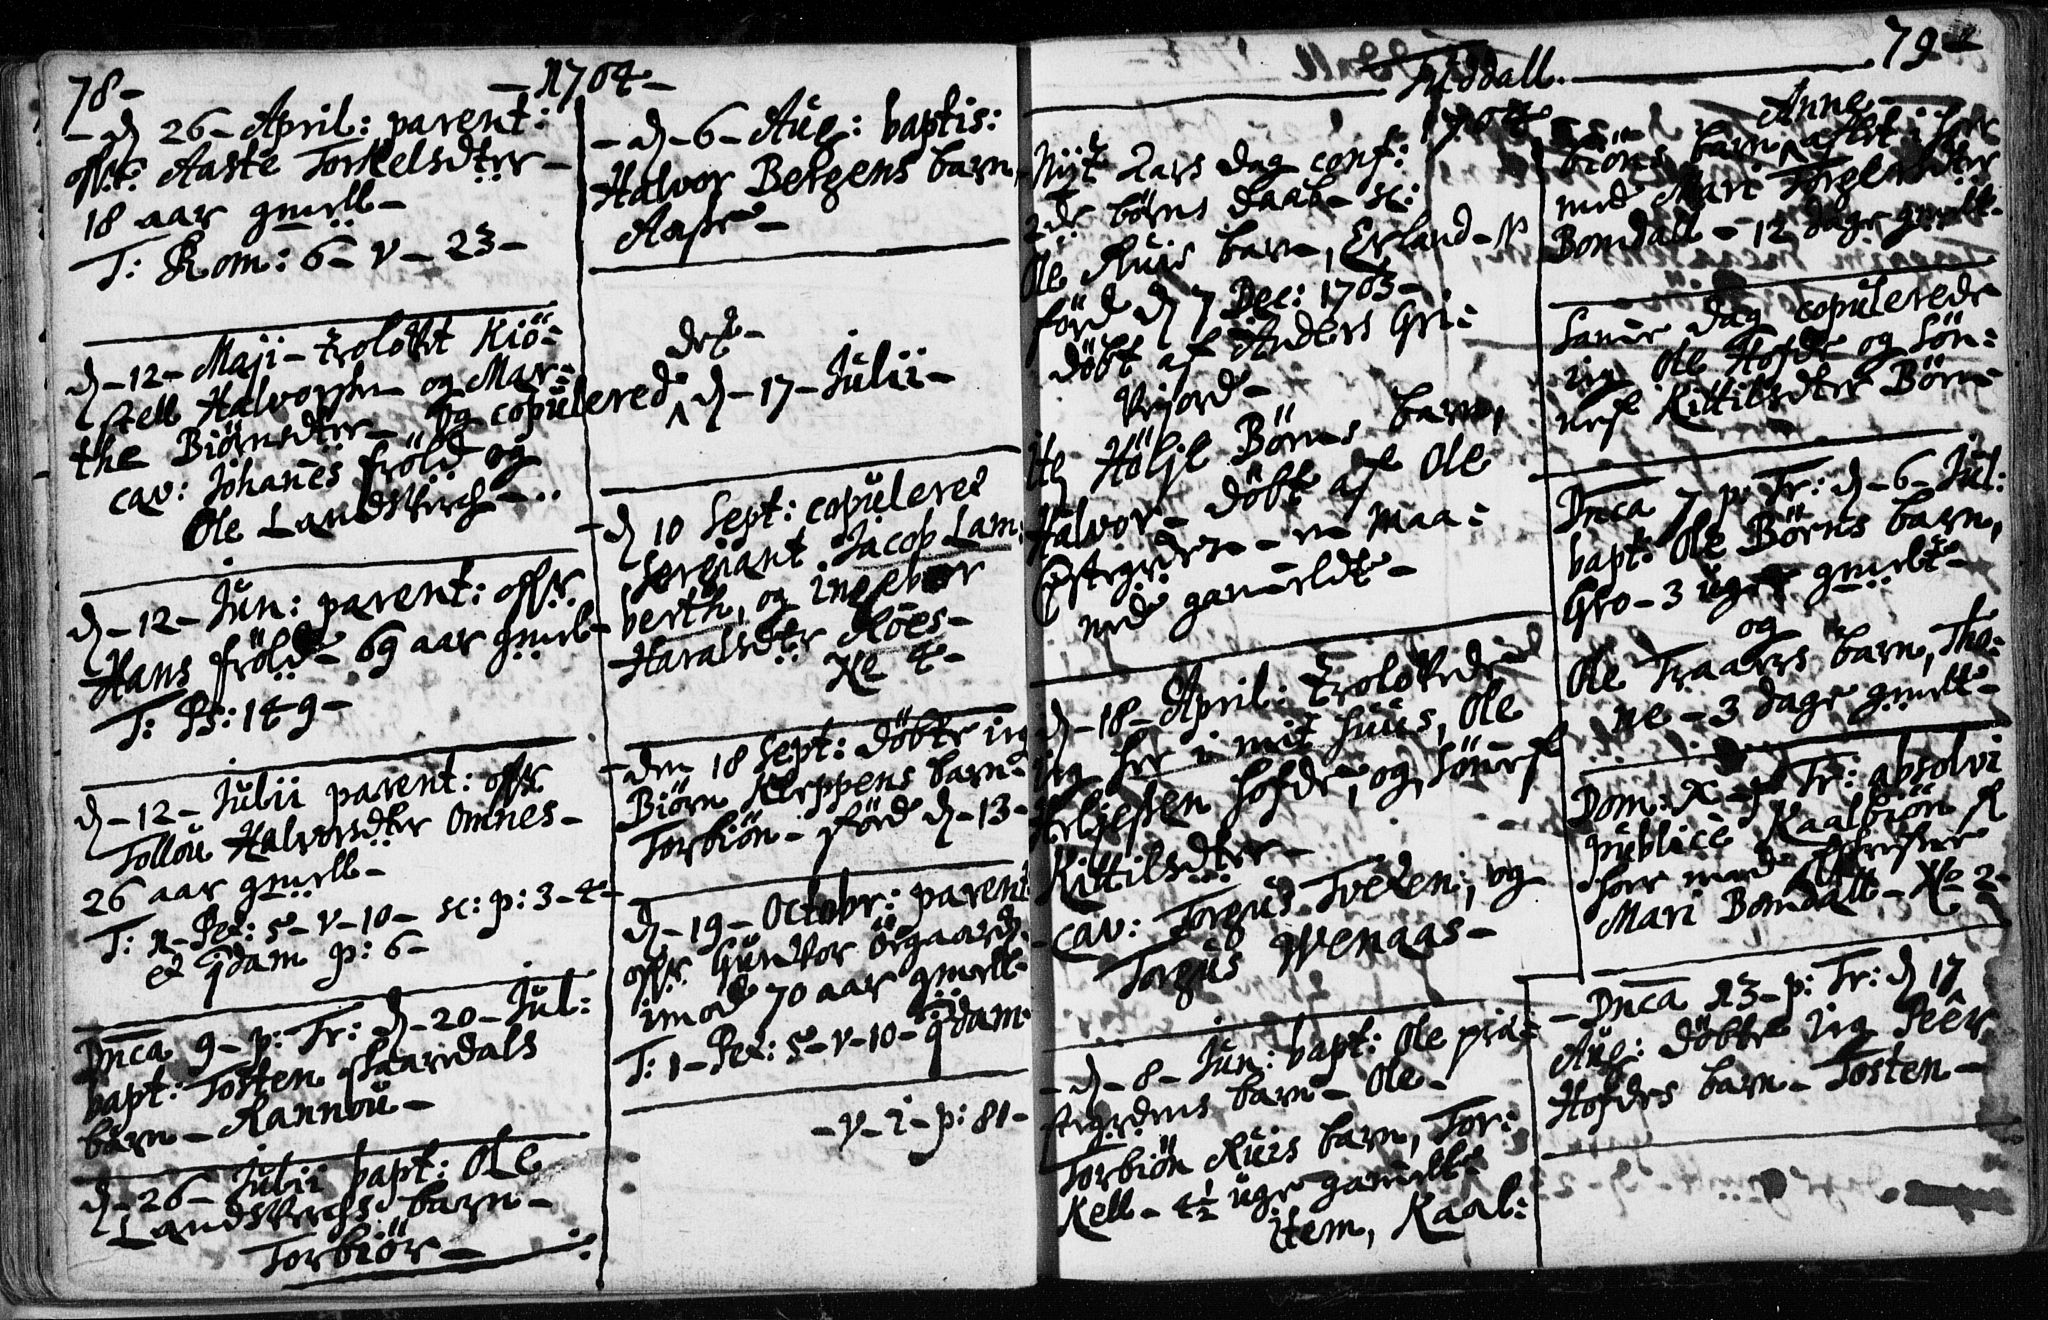 78- -1704-
- d 26- April: parent:
offr: Aaste Torkelsdter-
18 aar gmell-
T: Rom: 6- v- 23-
d-12- Maji- trolofvt Kiö-
stell Halvorsen og Mar-
the Biörnsdter- og copulered
cav: Johanes fröld og
Ole Landsverch-..
d-12- Jun: parent: offr
Hans fröld- 69 aar gmel-
T: Ps: 149-
d-12- Julii parent: offr
Tollou Halvorsdter Omnes-
26 aar gmell-
T: 1- Pet: 5- v-10- sc: p: 3-4-
et qdam p: 6-
Dnca 9- p: Tr: d-20- Jul:
bapt: Tosten skaardals
barn- Rannou-
d-26- Julii bapt: Ole
Landsverchs barn-
Torbiör-
- d-6- Aug: baptis:
Halvor Bergens barn,
Aase-
d-17- Julii-
-d 10 Sept: copuleret
Sergiant Jacob Lam-
berth, og ingebor
Haralsdter Röes-
Xe 4-
-den 18 Sept: döbte ieg
Biörn Kleppens barn-
Torbiön- förd d-13-
d-19- Octobr: parent
offr Gunvor örgaard,
imod 70 aar gmell-
T: 1- Pet: 5- v-10- qdam-
-v- 2- p: 81-
Hiddall. 79-
1704
-Nyt Aars dag conf:
2de börns daab- sc:
Ole Ruis barn, Erland-
förd d 7 Dec: 1703-
döbt af Anders Gri-
vjord-
Höljе Börns barn,
Halvor- döbt af Ole
Östegrden- en maa-
ned gammeldt-
d-18- April: trolofvede
ieg her i mit huus, Ole
Heljesen Hofde, og Sönnef
Kittilsdter-
-cav: Torgus Tveten, og
Torgus Wenaas-
- d- 8- Jun: bapt: Ole præ-
stegrdens barn- Ole-
Torbiön Ruis barn, Tor-
Kell- 4½ uge gamellt
item, Kaal-
Anne-
biöns barn, aflet i hor
med Mari Torgersdter
Bomdall- 12 dage gmell-
Samme dag copulerede
ieg Ole Hofde og Sön-
nef Kittilsdter Börn-
Dnca 7 p: Tr: d-6- Jul:
bapt: Ole Börns barn,
Gro- 3 uger gmelt-
og
Ole Traaers barn, Tho-
ne- 3 dage gmelt-
Dom: X- p Tr: absolvi
publicè Kaalbiön
hoer med
Mari Bomdall- Xe 2-
-Dnca 13- p: Tr: d 17
Aug: döbte ieg Peêr
Hofdes barn- Tosten-